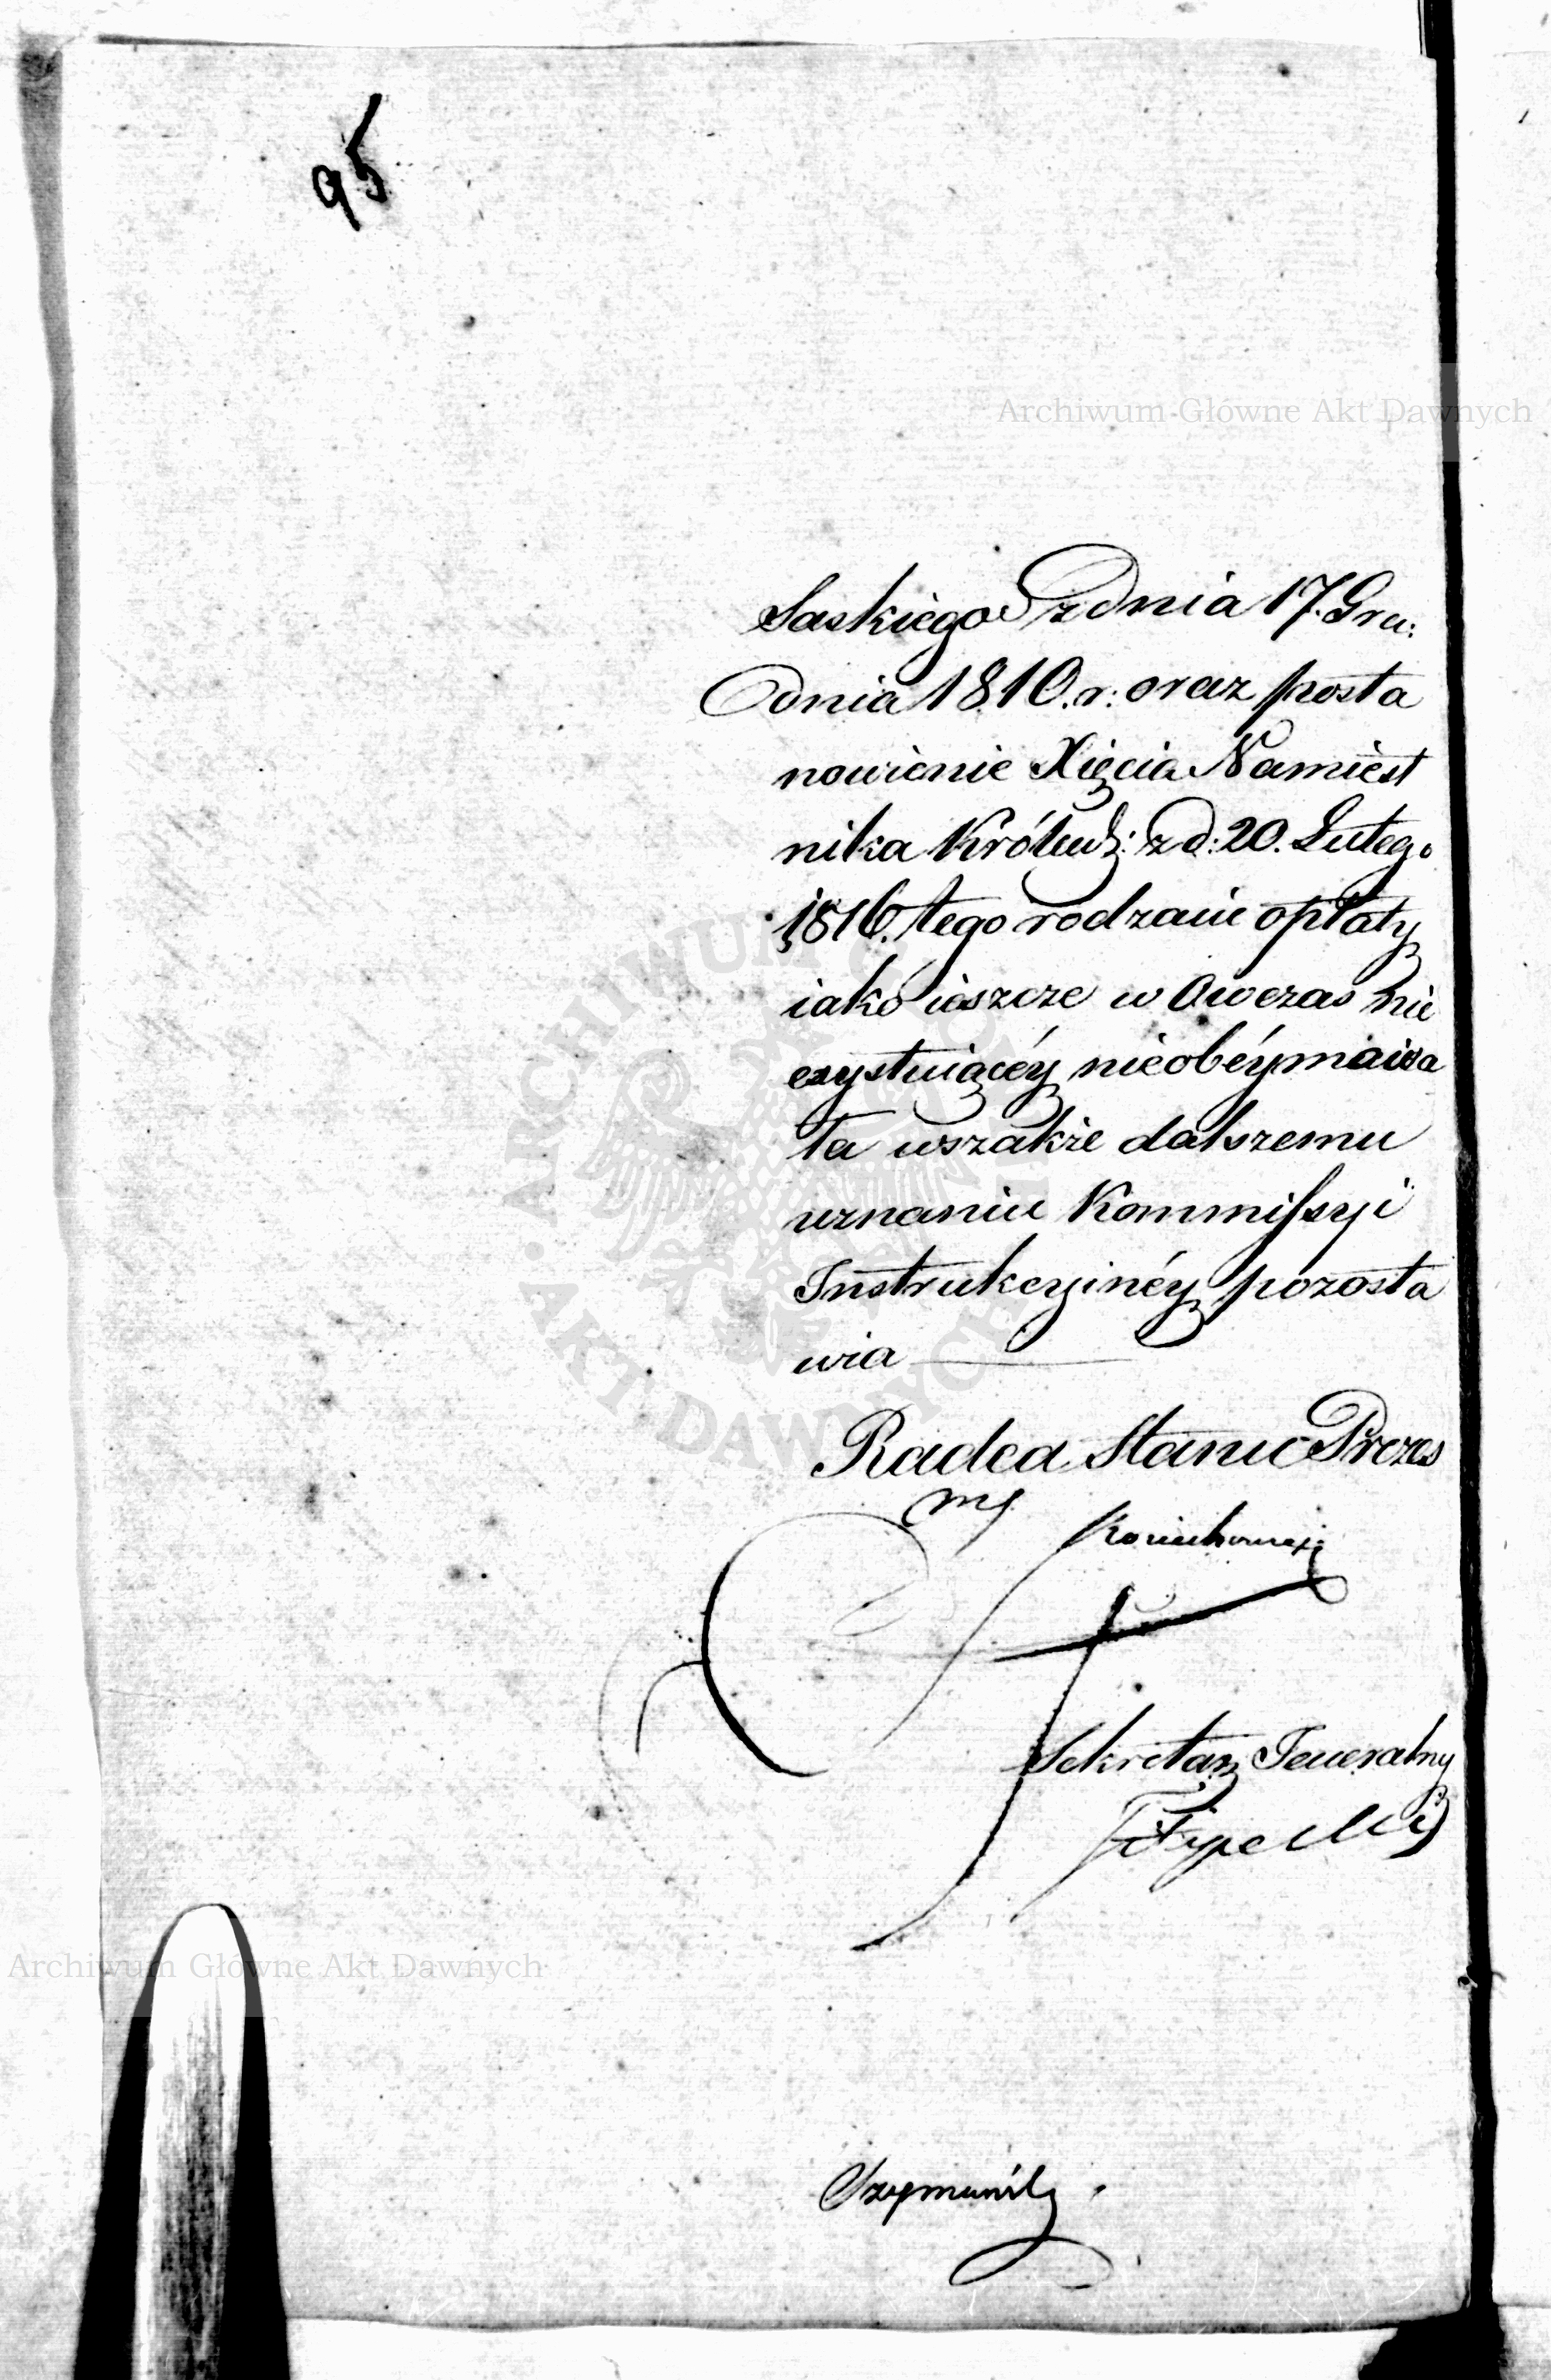 95
Archiwum Główne Akt Dawnych
Saskiego z dnia 17. Gru:
dnia 1810. r: oraz posta
nowienie Xięcia Namiest
nika Królewsk: z d: 20. Lutego
1816. tego rodzaiu opłaty
iako ieszcze w Owczas nie
exystuiącéy nieobéymuiąca
ta wszakże dalszemu
uznaniu Kommissyi
Instrukcyinéy pozosta
wia
Radca Stanu Prezes
Sekretarz Jeneralny
Filipecki
Archiwum Główne Akt Dawnych
Szymański
ARCHIWUM GŁÓWNE AKT DAWNYCH